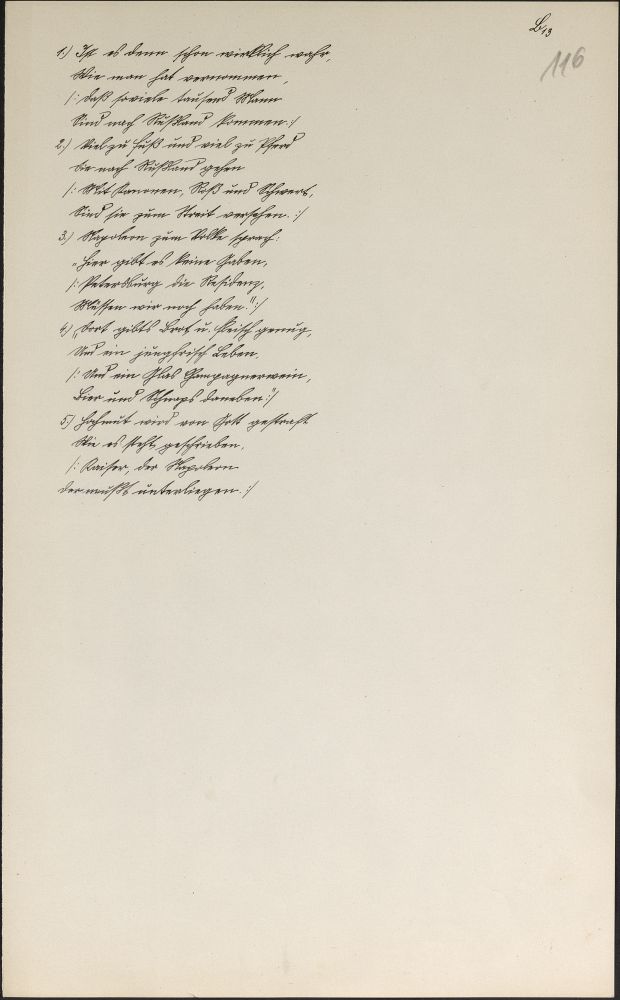 B13
116
1.) Ist es denn schon wirklich wahr,
Wie man hat vernommen,
/: Daß soviele tausend Mann
Sind nach Rußland kommen :/
2.) Viel zu Fuß und viel zu Pferd
Sie nach Rußland gehen
/: Mit Kanonen, Roß und Schwert,
Sind sie zum Streit versehen. :/
3.) Napoleon zum Volke sprach:
„Hier gibt es keine Gaben,
/: Petersburg die Residenz,
Müssen wir noch haben!" :/
4.) „Dort gibts Brot u. Fleisch genug,
Und ein jungfrisch Leben,
/: Und ein Glas Champagnerwein,
Bier und Schnaps daneben." :/
5.) Hochmut wird von Gott gestraft
Wie es steht geschrieben,
/: Kaiser, der Napoleon
der mußt unterliegen. :/